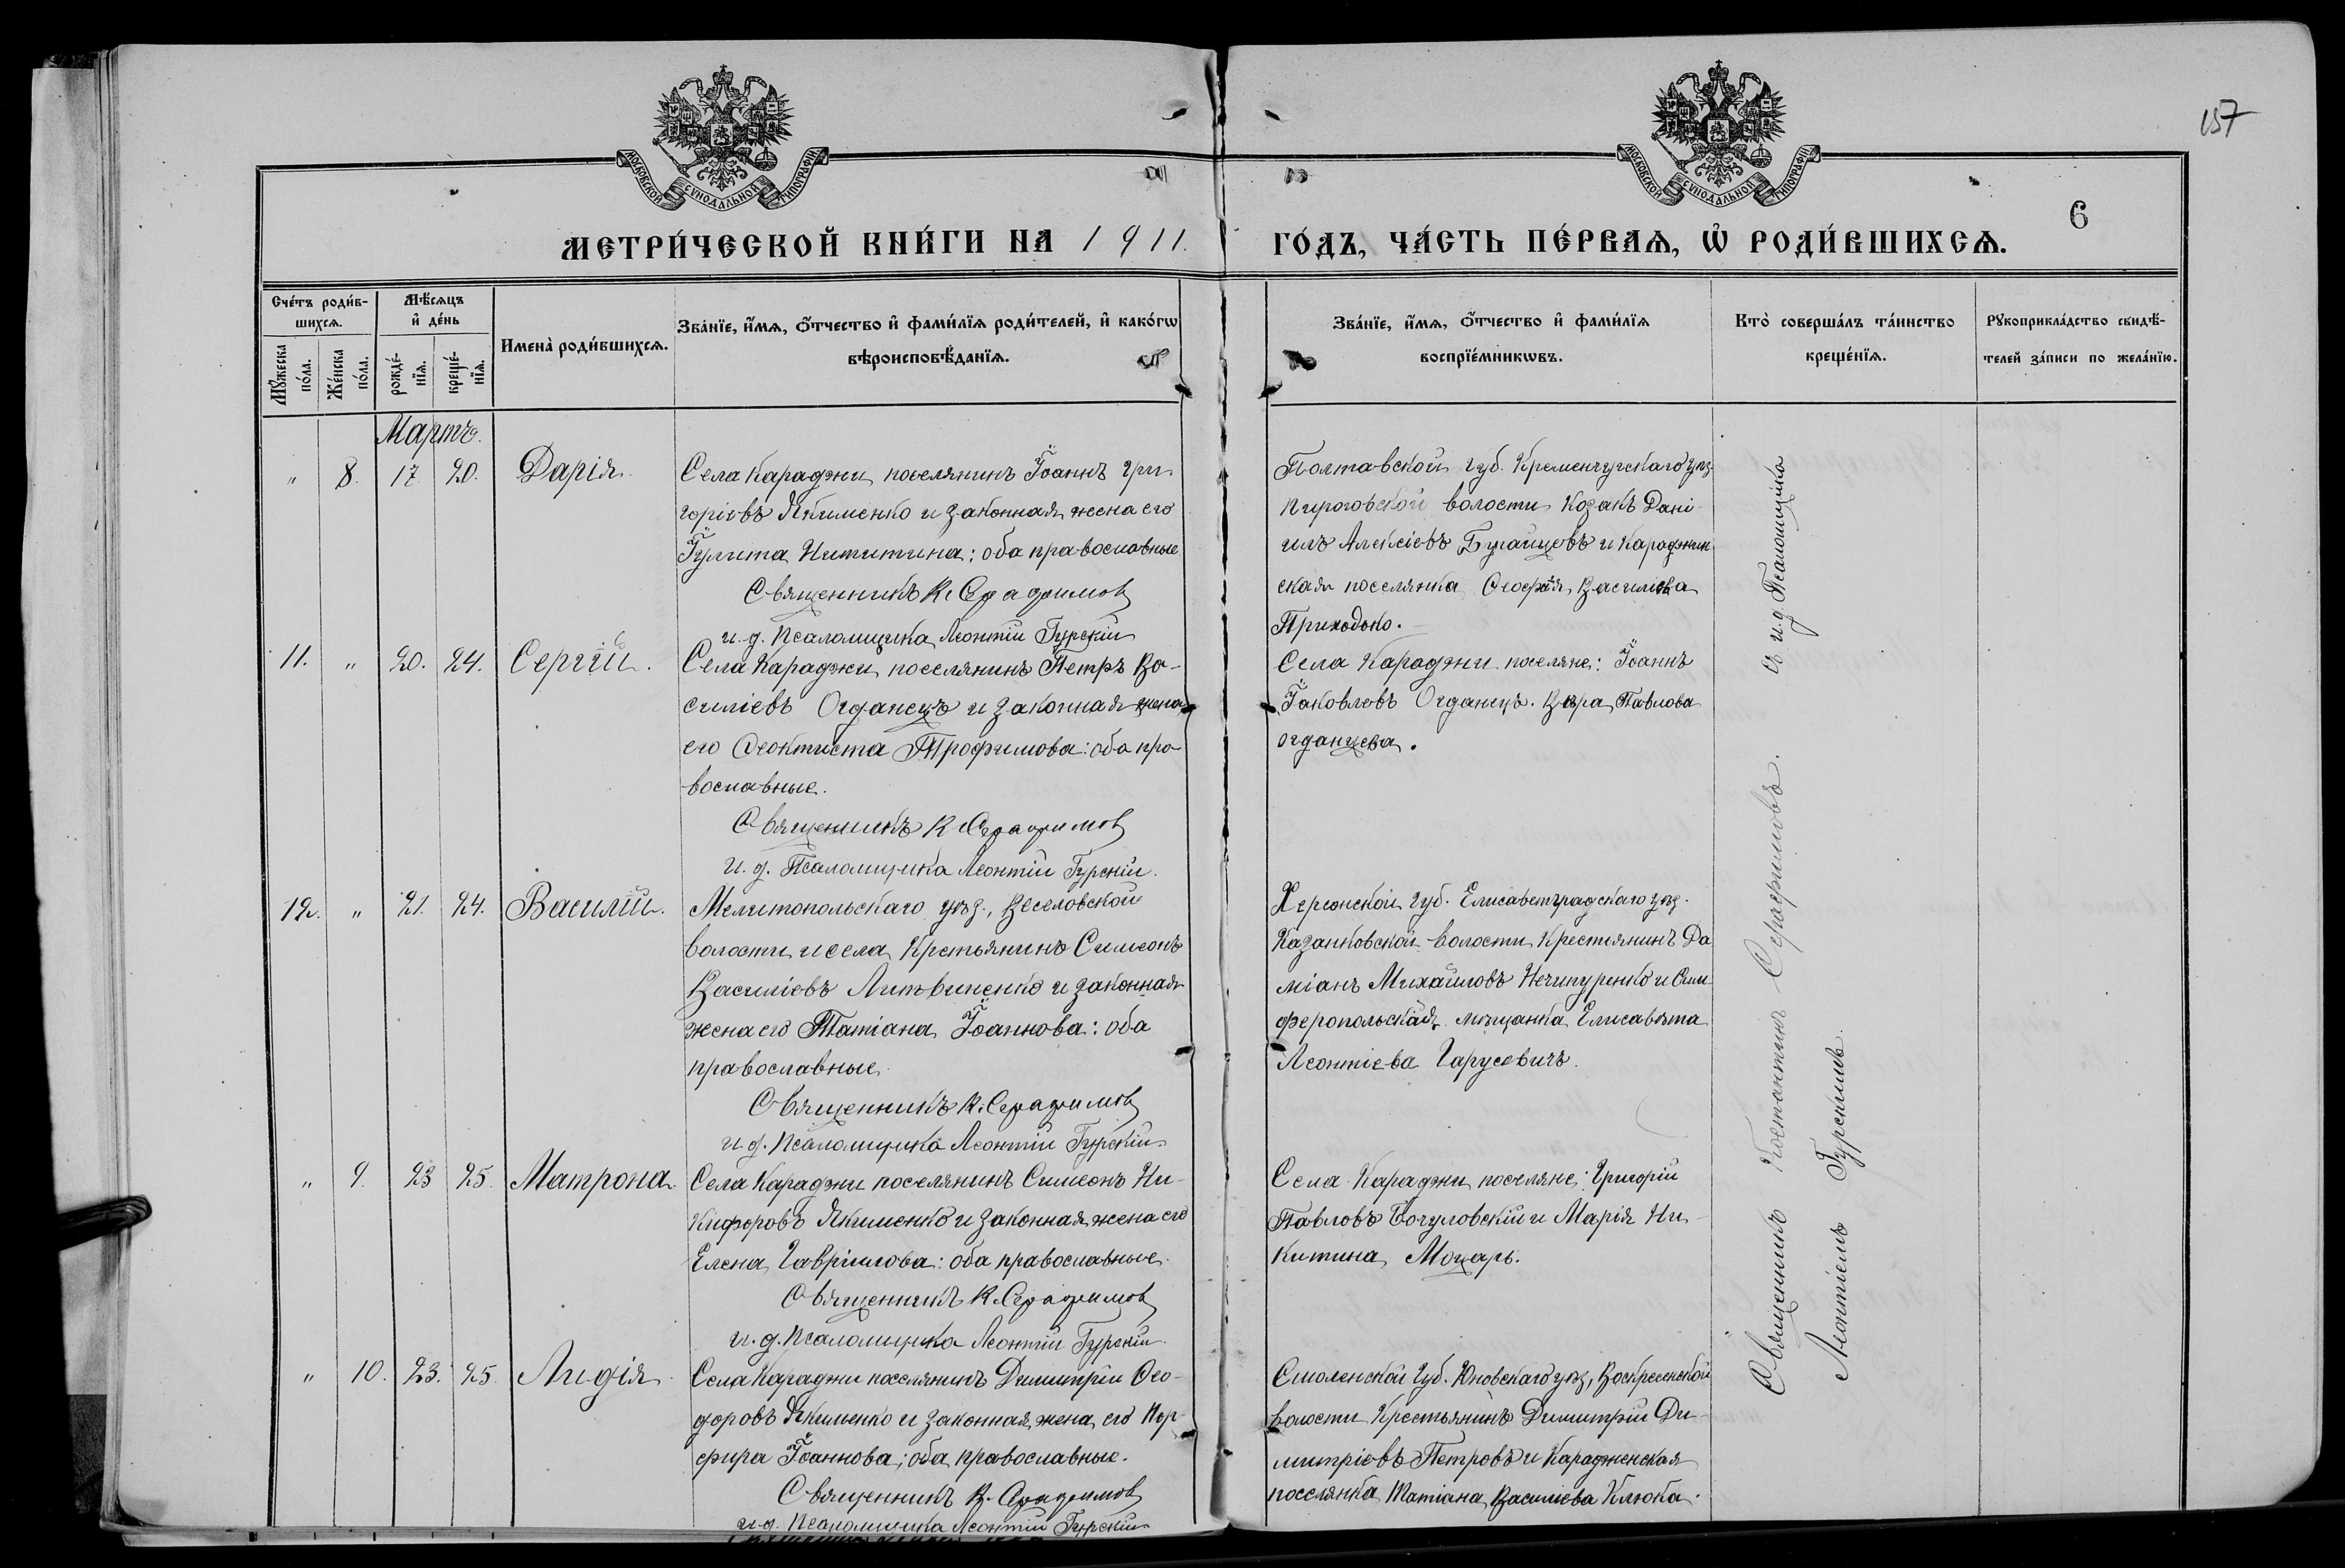 157
МОСКОВСКОЙ СѴНОДАЛЬНОЙ ТИПОГРАФІИ
МОСКОВСКОЙ СѴНОДАЛЬНОЙ ТИПОГРАФІИ
6
МЕТРИ́ЧЕСКОЙ КНИ́ГИ НА 1911.
ГО́ДЪ, ЧА́СТЬ ПЕ́РВАѦ, Ѽ РОДИ́ВШИХСѦ.
Сче́тъ роди́в-
шихсѧ.
Мꙋ́жеска
по́ла.
Же́нска
по́ла.
Мѣ́сѧцъ
и҆ де́нь
рожде́-
нїѧ.
креще́-
нїѧ.
Имена̀ роди́вшихсѧ.
Зва́нїе, и҆́мѧ, ѻ҆́тчество и҆ фами́лїѧ роди́телей, и҆ како́гѡ
вѣроисповѣ́данїѧ.
Зва́нїе, и҆́мѧ, ѻ҆́тчество и҆ фами́лїѧ
воспрїе́мникѡвъ.
Кто̀ соверша́лъ та́инство
креще́нїѧ.
Рꙋкоприкла́дство свидѣ́-
телей за́писи по жела́нїю.
Мартъ.
" 8. 17 20. Дарія.
Села Караджи поселянинъ Іоаннъ Гри-
горіевъ Якименко и законная жена его
Іулита Никитина: оба православные
Священникъ К. Серафимов
и. д. Псаломщика Леонтій Гурскій
Полтавской губ. Кременчугскаго уѣз.
Пироговской волости козакъ Дані-
илъ Алексіевъ Бугайцовъ и Караджин
ская поселянка Ѳеофія Василіева
Приходько.
11. " 20. 24. Сергій.
Села Караджи поселянинъ Петръ Ва-
силіевъ Огданецъ и законная жена
его Ѳеоктиста Трофимова: оба пра-
вославные.
Священникъ К Серафимов
и. д. Псаломщика Леонтій Гурскій.
Села Караджи поселяне: Іоаннъ
Іаковлевъ Огданецъ. Вѣра Павлова
Огданцева.
12. " 21. 24. Василій.
Мелитопольскаго уѣзд., Веселовской
волости и села Крестьянинъ Симеонъ
Василіевъ Литвиненко и законная
жена его Татіана Іоаннова: оба
православные.
Священникъ К. Серафимов
и. д. Псаломщика Леонтій Гурскій
Херсонской губ. Елисаветградскаго уѣз.
Казанковской волости Крестиянинъ Да
міанъ Михайловъ Нечипуренко и Сим-
феропольская мѣщанка Елисавета
Леонтіева Гарусевичъ.
" 9. 23 25. Матрона.
Села Караджи поселянинъ Симеонъ Ни-
кифоровъ Якименко и законная жена его
Елена Гавріилова: оба православные.
Священникъ К. Серафимов
и. д. Псаломщика Леонтій Гурскій
Села Караджи поселяне: Григорій
Павловъ Бочуловскій и Марія Ни-
китина Моцарь.
" 10. 23. 25. Лидія.
Села Караджи поселянинъ Димитрій Ѳео-
доровъ Якименко и законная жена его Пор-
фира Іоаннова; оба православные.
Священникъ К. Серафимов
и. д. Псаломщика Леонтій Гурскій
Смоленской Губ. Юновскаго уѣз, Воскресенской
волости Крестьянинъ Димитрій Ди-
митріевъ Петровъ и Карадженская
поселянка Татіана Василіева Клюка.
Священникъ Константинъ Серафимовъ. съ и. д. Псаломщика
Леонтіемъ Гурскимъ.